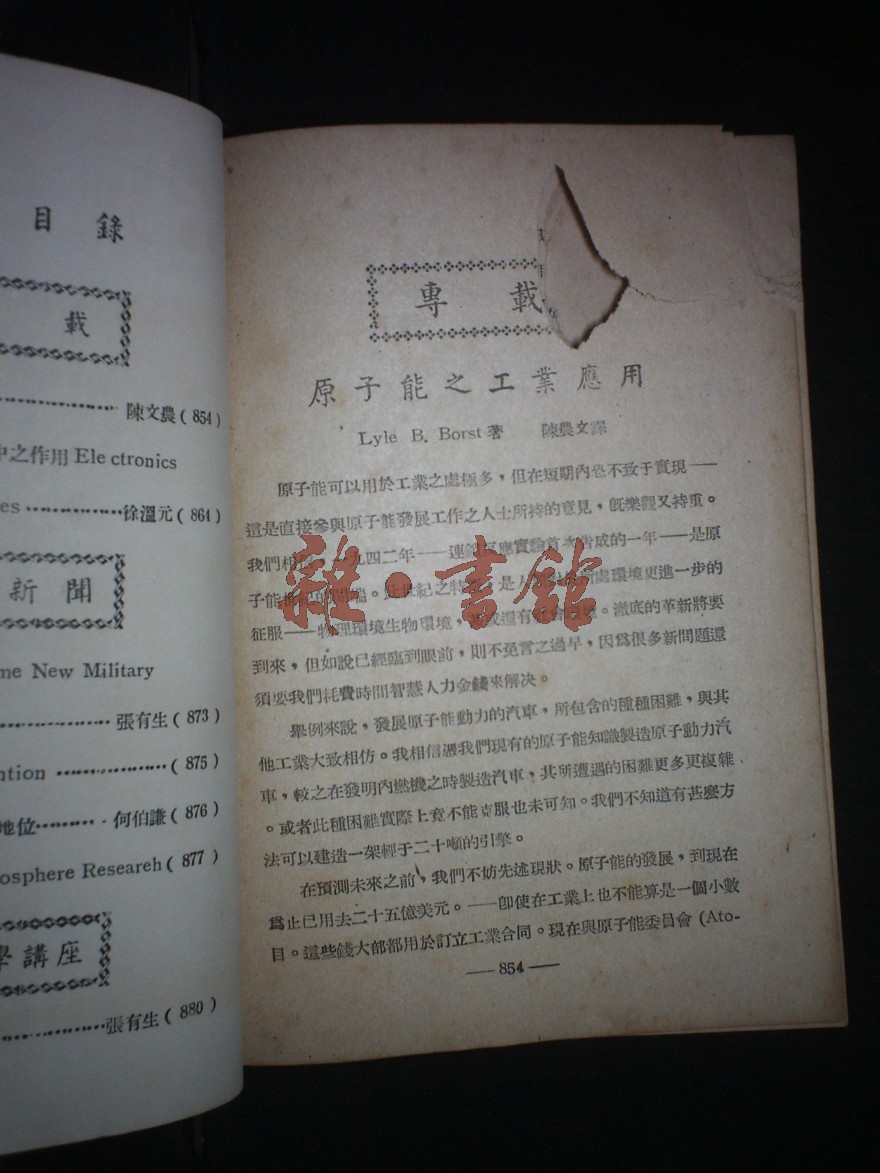 目錄
載
陳文農(854)
中之作用 Electronics
es 徐溫元(864)
新聞
me New Military
張有生(873)
ntion (875)
地位 何伯謙(876)
osphere Researeh(877)
學講座
張有生(880)
專載
原子能之工業應用
Lyle B. Borst著 陳農文譯
原子能可以用於工業之處極多,但在短期內恐不致于實現——
這是直接參與原子能發展工作之人士所持的意見,旣樂觀又持重。
我們相信,一九四二年——連鎖反應實驗首次告成的一年——是原
子能世紀的開端。此世紀之特徵,是人類對於所處環境更進一步的
征服——物理環境生物環境,或還有社會環境。澈底的革新將要
到來,但如說已經臨到眼前,則不免言之過早,因爲很多新問題還
須要我們耗費時間智慧人力金錢來解决。
舉例來說,發展原子能動力的汽車,所包含的種種困難,與其
他工業大致相仿。我相信憑我們現有的原子能知識製造原子動力汽
車,較之在發明內燃機之時製造汽車,其所遭遇的困難更多更複雜
。或者此種困難實際上竟不能克服也未可知。我們不知道有甚麼方
法可以建造一架輕于二十噸的引擎。
在預測未來之前,我們不妨先述現狀。原子能的發展,到現在
爲止已用去二十五億美元。——卽使在工業上也不能算是一個小數
目。這些錢大部都用於訂立工業合同。現在與原子能委員會 (Ato-
—854—
雜·書館